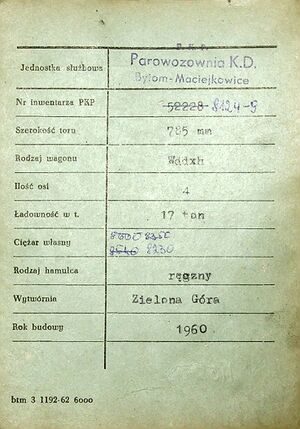 P. K. P.
Jednostka służbowa Parowozownia K.D.
Bytom-Maciejkowice
Nr inwentarza PKP 52228 8124-5
Szerokość toru 785 mm
Rodzaj wagonu Wddxh
Ilość osi 4
Ładowność w t. 17 ton
Ciężar własny 8350
8230
Rodzaj hamulca ręczny
Wytwórnia Zielona Góra
Rok budowy 1960
btm 3 1192-62 6000